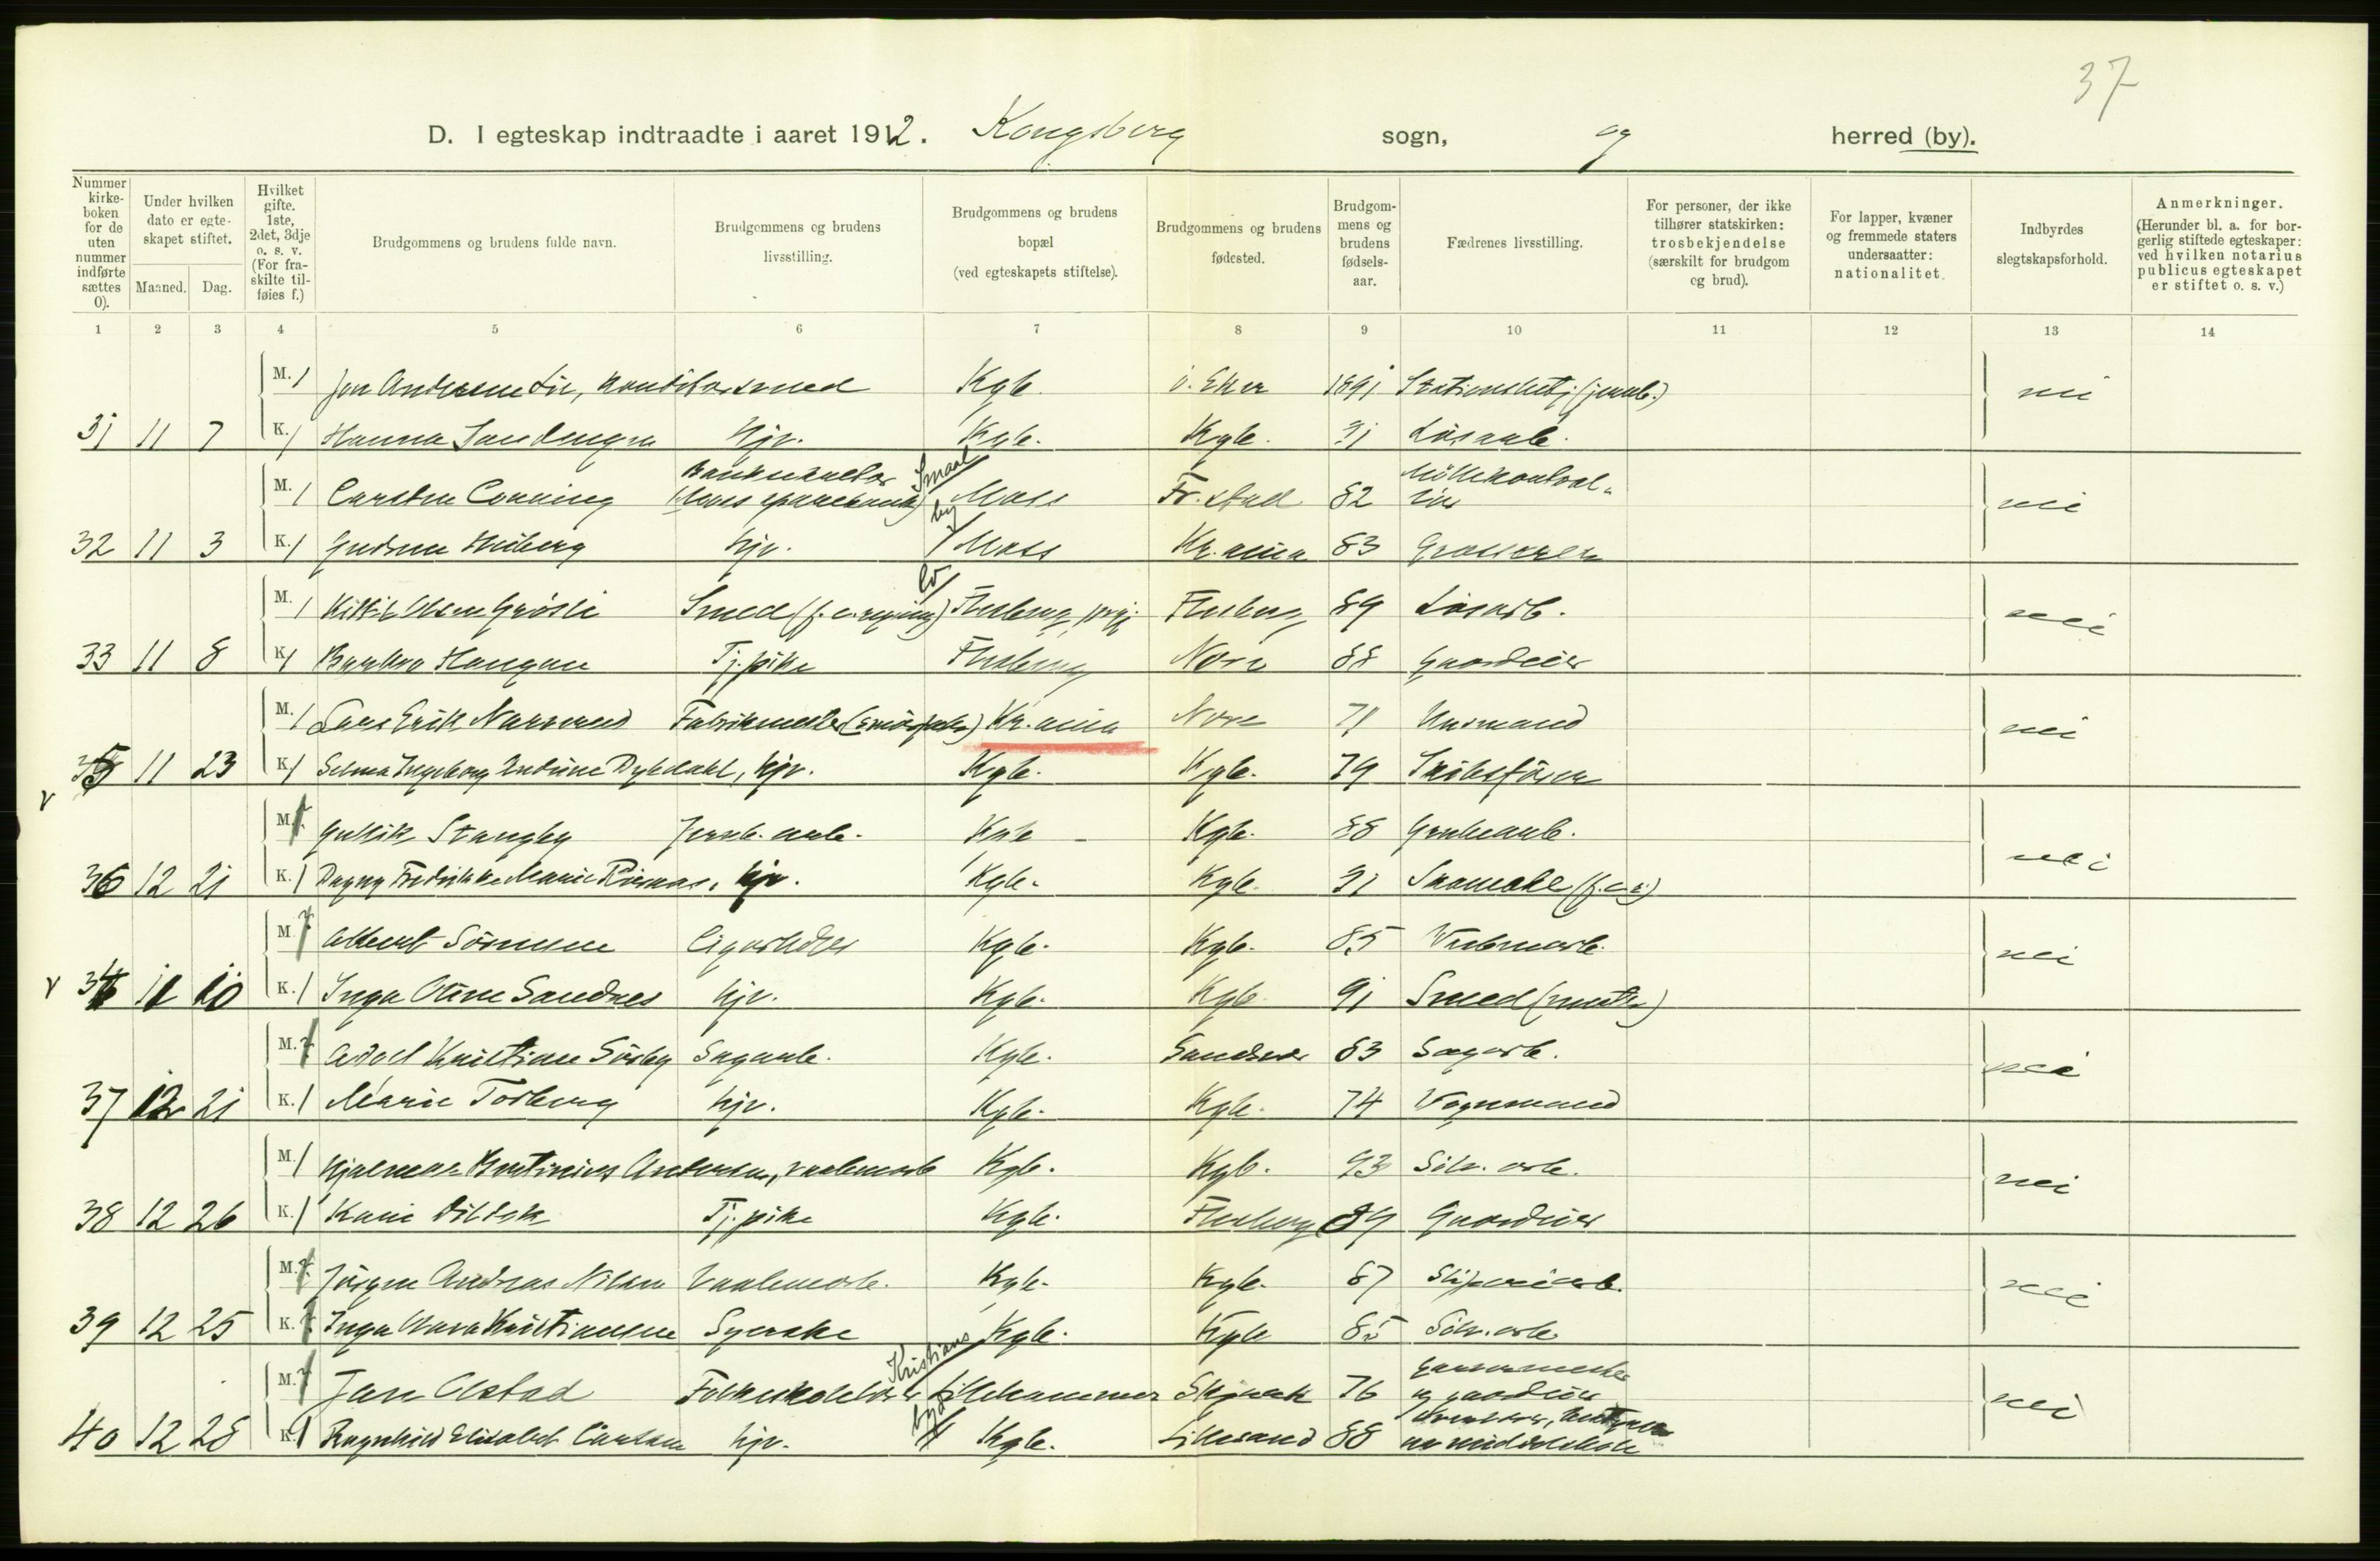 37
D. I egteskap indtraadte i aaret 1912. Kongsberg sogn, og herred (by).
Nummer kirke-boken for de uten nummer indførte sættes 0).
Under hvilken dato er egte-skapet stiftet.
Maaned. Dag.
Hvilket gifte. 1ste, 2det, 3dje o. s. v. (For fra-skilte til-føies f.)
Brudgommens og brudens fulde navn.
Brudgommens og brudens livsstilling.
Brudgommens og brudens bopæl (ved egteskapets stiftelse).
Brudgommens og brudens fødested.
Brudgom-mens og brudens fødsels-aar.
Fædrenes livsstilling.
For personer, der ikke tilhører statskirken: trosbekjendelse (særskilt for brudgom og brud).
For lapper, kvæner og fremmede staters undersaatter: nationalitet.
Indbyrdes slegtskapsforhold.
Anmerkninger. (Herunder bl. a. for bor-gerlig stiftede egteskaper: ved hvilken notarius publicus egteskapet er stiftet o. s. v.)
1 2 3 4 5 6 7 8 9 10 11 12 13 14
M. 1 Jon Andersen Lie, Kgb. ö. Eker 1891 nei
31 11 7 K. 1 Hanna Sandengen hjv. Kgb. Kgb. 91 Løsarb.
M. 1 Carsten Conning Smaal Moss Fr.stad 82 nei
32 11 3 K. 1 Gudrun Hiiberg hjv. by Moss Kr.ania 83 Grosserer
M. 1 Kittil Olsen Grøsli Smed Flesberg Flesberg 89 Løsarb. nei
33 11 8 K. 1 Barbro Haugan Tj.pike Flesberg Nore 88 Gaardeier
M. 1 Lars Erik Narverud Fabrikmester Kr.ania Nore 71 Husmand nei
35 11 23 K. 1 Selma Ingeborg Andrine Dyhdahl, hjv. Kgb. Kgb. 79 Skibsfører
M. 1 Gullik Stangeby Jernb. arb. Kgb. Kgb. 88 Grubearb. nei
36 12 21 K. 1 Dagny Fredrikke Marie hjv. Kgb. Kgb. 91 Skomaker
M. Albert Sørensen Cigararb Kgb. Kgb. 85 nei
34 11 10 K. 1 Inga Oline Sandnes hjv. Kgb. Kgb. 91 Smed
M. Adolf Kristian Søsby Sagarb. Kgb. Sandsvær 83 Sagarb. nei
37 12 21 K. 1 Marie Torberg hjv. Kgb. Kgb. 74 Vognmand
M. 1 Hjalmar Andersen, vaabenarb Kgb. Kgb. 93 Sölv. arb. nei
38 12 26 K. 1 Kari Tj.pike Kgb. Flesberg 89 Gaardeier
M. Jörgen Andreas Nilsen Vaabenarb. Kgb. Kgb. 87 Sliperiarb. nei
39 12 25 K. Inga Klara Kristiansen Syerske Kgb. Kgb 85 Sölv. arb
M. Jan Olstad Folkeskolelærer Kristians Lillehammer Skjaak 76 og gaardeier nei
40 12 28 K. 1 Ragnhild Elisabet Carlsen hjv. by Kgb. Lillesand 88 middelskole